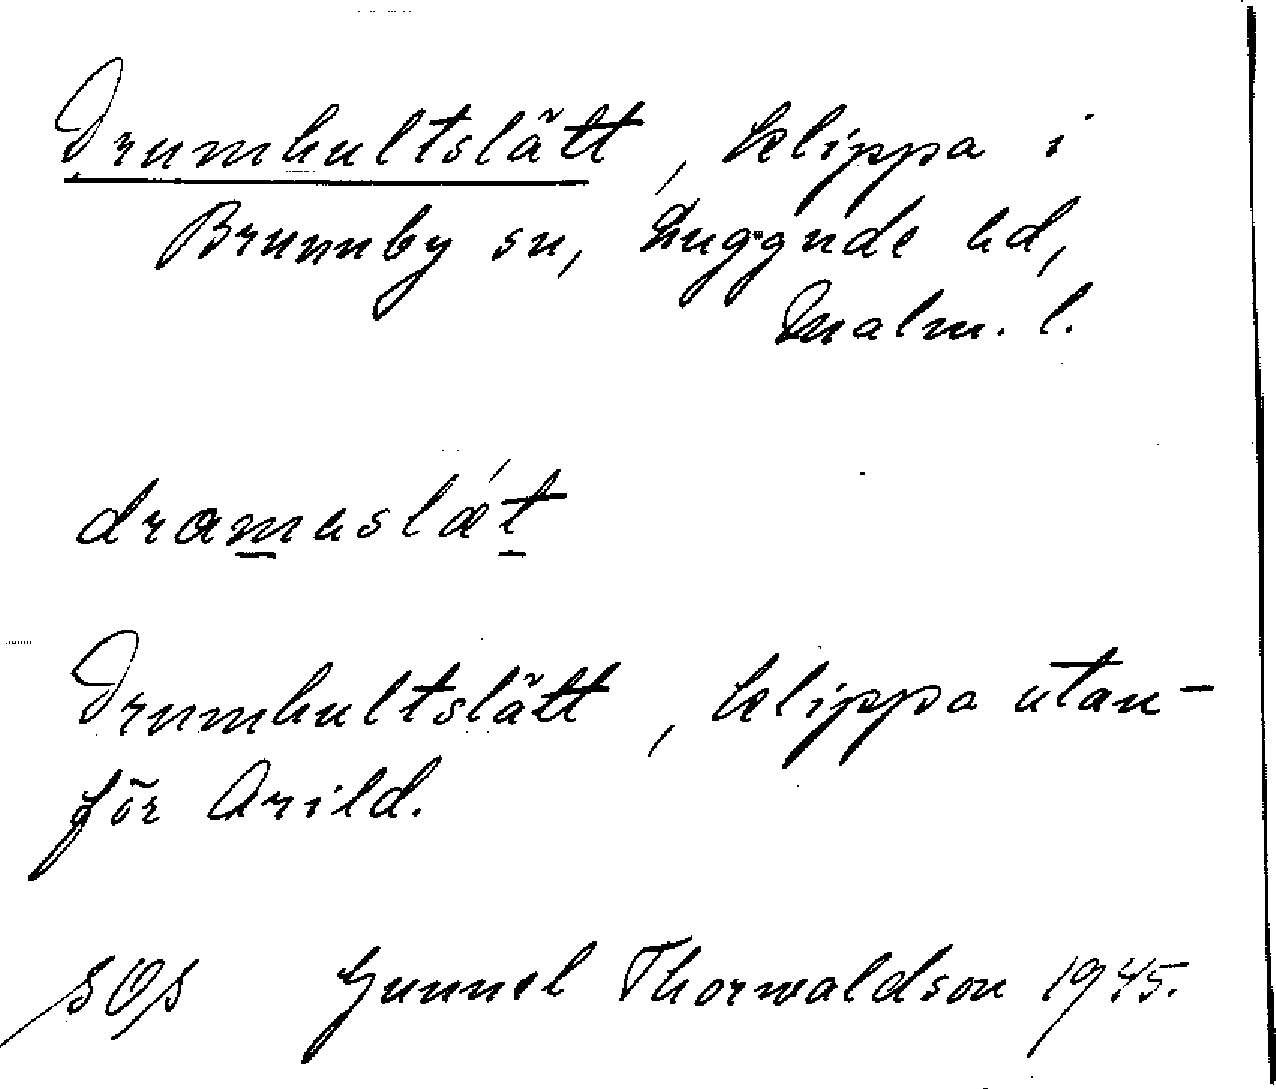 Drumhultslätt, klippa i
Brunnby sn, Luggude hd,
Malm. l.
dramaslǽt
Drumhultslätt, klippa utan-
för Arild.
SOS Gunnel Thorwaldson 1945.